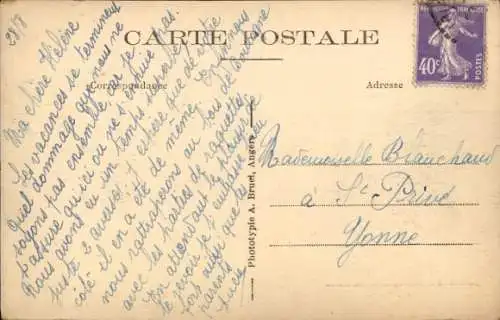 288
CARTE POSTALE
Correspondance
Adresse
40c
POSTES
Ma chère Hélène
Les vacances se terminent
quel dommage que nous ne
soyons pas ensemble car je
t'assure qu'ici on ne s'ennuie pas.
Nous avons eu un temps superbe
juste 2 averses. J'espère que de votre
côté il en a été de même.
nous rattraperons au bois de Boulogne
avec les parties de raquettes
En attendant le plaisir
de te revoir je t'embrasse
fort ainsi que
parents
Phototypie A. Bruel, Angers
Mademoiselle Blanchard
à St Privé
Yonne